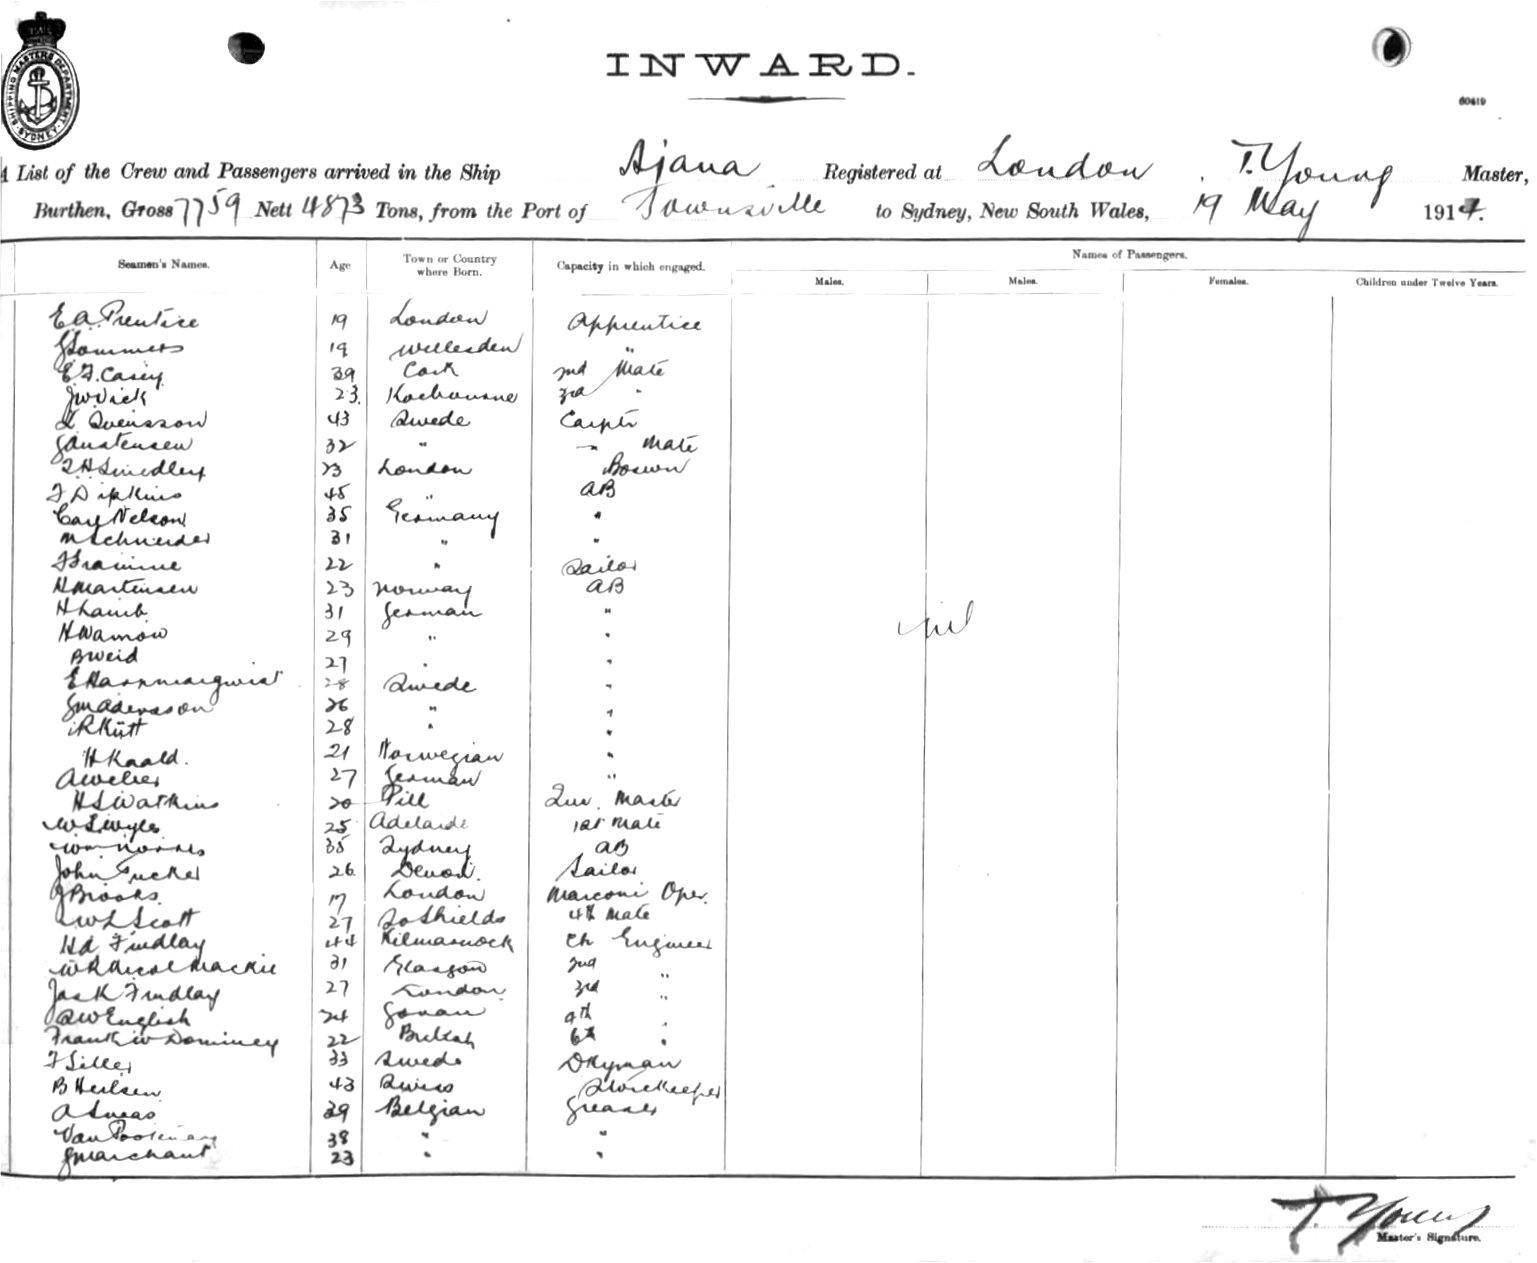 SHIPPING MASTERS DEPARTMENT SYDNEY
INWARD.
60419
A List of the Crew and Passengers arrived in the Ship Ajana Registered at London , T. Young Master,
Burthen, Gross 7759 Nett 4873 Tons, from the Port of Townsville to Sydney, New South Wales, 19 May 1914.
Seamen's Names. Age Town or Country where Born. Capacity in which engaged. Names of Passengers.
Males. Males. Females. Children under Twelve Years.
E A Prentice 19 London Apprentice
Sommers 19 Willesden "
E F. Casey 39 Cork 2nd Mate
J W Dick 23. 3rd "
Svensson 43 Swede Carptr
32 " Mate
Smedley 23 London Boswn
F Dipkins 45 " AB
Carl Nelson 35 Germany "
M Schneider 31 " "
22 " Sailor
H Martensen 23 Norway AB
H Lamb 31 German "
H Warnow 29 " "
B Weid 27 " "
28 Swede "
26 " "
28 " "
H Kaald. 21 Norwegian "
27 German "
H S Watkins 20 Pill Qur. Master
W S Wyles 25 Adelaide 1st Mate
Wm Norris 35 Sydney AB
John Tucker 26 Devon. Sailor
J Brooks. 17 London Marconi Oper.
W L Scott 27 So Shields 4th Mate
Hd Findlay 44 Kilmarnock Ch Engineer
W R Nicol Mackie 31 Glasgow 2nd "
Jas K Findlay 27 London 3rd "
English 24 Govan 4th "
Frank W Dominey 22 6th "
F Siller 33 Swede Dkyman
B Heilsen 43 Swiss Storekeeper
A Lucas 39 Belgian Greaser
Van 38 " "
Marchant 23 " "
nil
T. Young
Master's Signature.